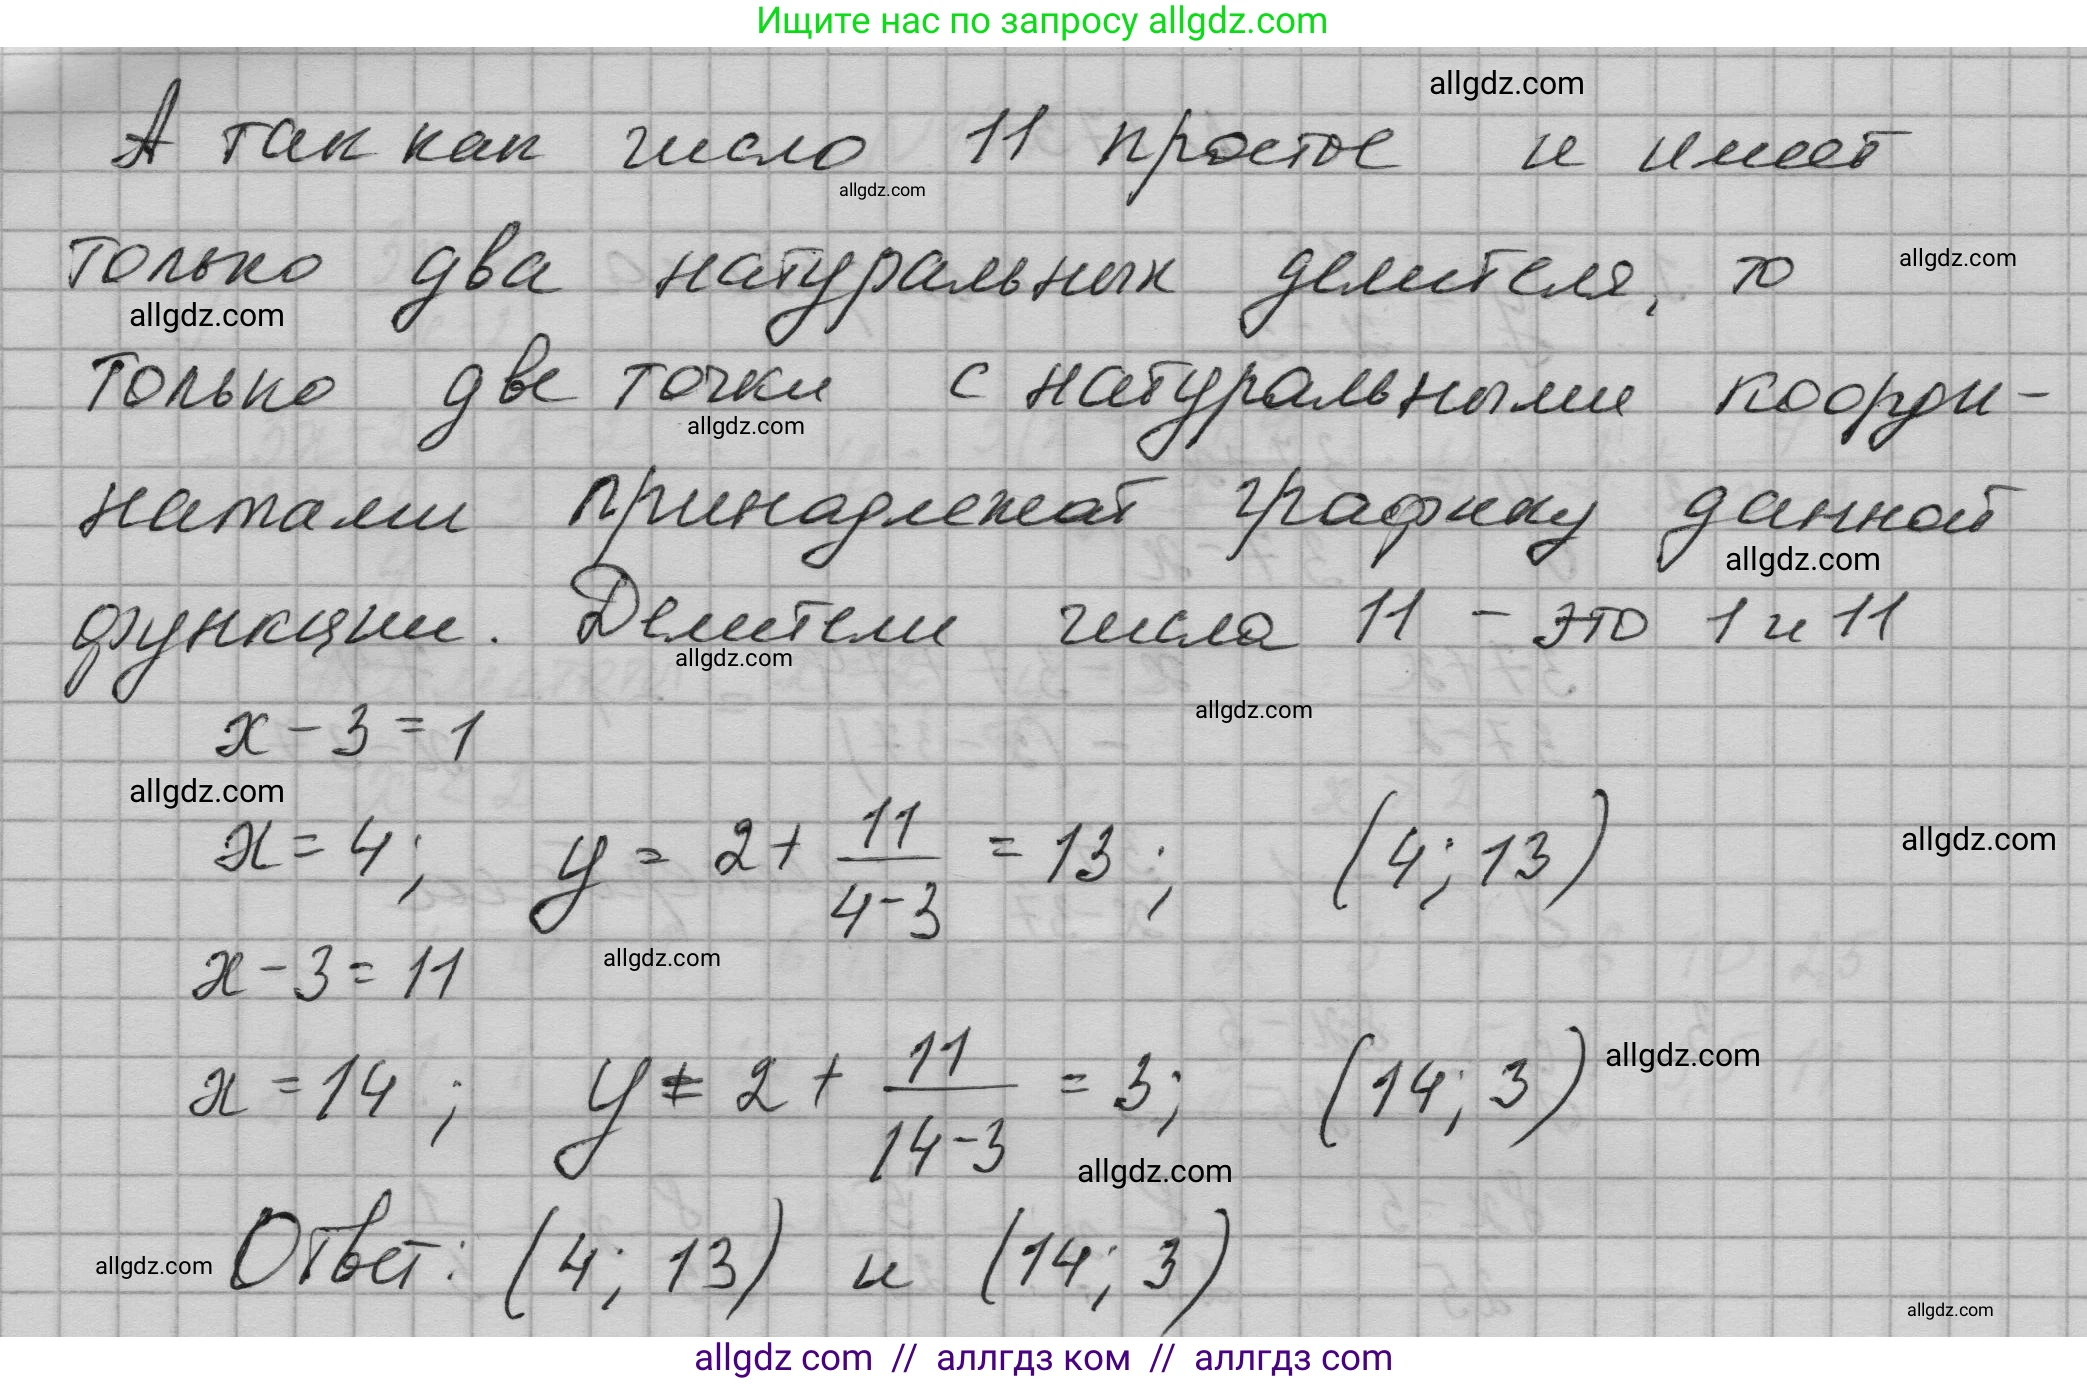 Ищите нас по запросу allgdz.com
allgdz.com
А так как число 11 простое и имеет
allgdz.com
только два натуральных делителя, то
allgdz.com
allgdz.com
только две точки с натуральными коорди-
allgdz.com
натами принадлежат графику данной
allgdz.com
функции. Делители числа 11 - это 1 и 11
allgdz.com
allgdz.com
x - 3 = 1
allgdz.com
x = 4; y = 2 + 11/(4-3) = 13; (4; 13)
allgdz.com
x - 3 = 11
allgdz.com
x = 14; y = 2 + 11/(14-3) = 3; (14; 3)
allgdz.com
allgdz.com
Ответ: (4; 13) и (14; 3)
allgdz.com
allgdz.com
allgdz com // аллгдз ком // аллгдз com